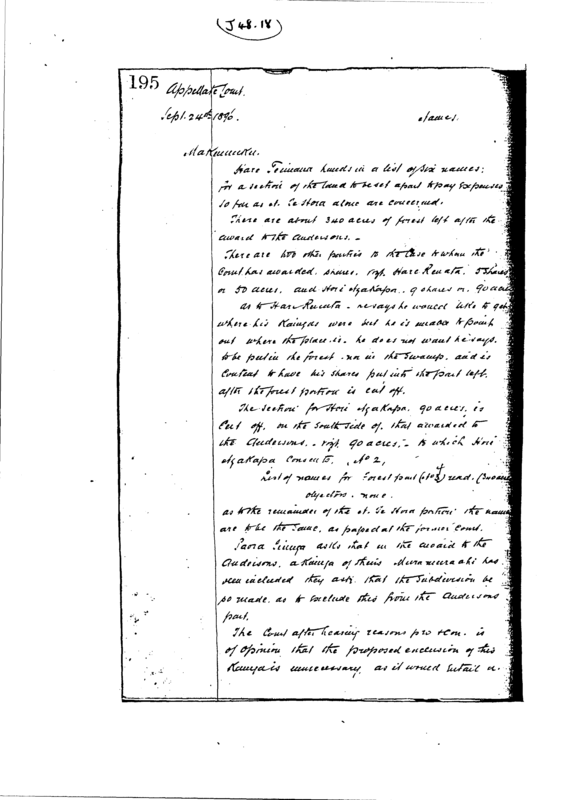 (J 48.18)
195 Appellate Court.
Sept. 24th 1896. James.
Makumuku.
Hare Teimana hands in a list of six names;
for a section of the land to be set apart to pay expenses
so far as N. Te Hora alone are concerned.
There are about 340 acres of forest left after the
award to the Andersons. -
There are two other parties to the case to whom the
Court has awarded shares, viz. Hare Renata. 5 shares
or 50 acres. and Hori Ngakapa. 9 shares or 90 acres
as to Hare Renata - he says he would like to get
where his Kaingas were but he is unable to point
out where the place is. he does not want he says.
to be put in the forest nor in the swamp. and is
content to have his shares put into the part left.
after the forest portion is cut off.
The section for Hori Ngakapa. 90 acres. is
cut off. on the South side of that awarded to
the Andersons. - viz. 90 acres, - to which Hori
Ngakapa consents. No 2,
List of names for Forest part read.
objectors. none.
as to the remainder of the N. Te Hora portion the names
are to be the same, as passed at the former Court.
Paora asks that in the award to the
Andersons, a Kainga of theirs has
been included they ask that the subdivision be
so made. as to exclude this from the Andersons
part.
The Court after hearing reasons pro & con. is
of opinion that the proposed exclusion of this
Kainga is unnecessary, as it would entail a.